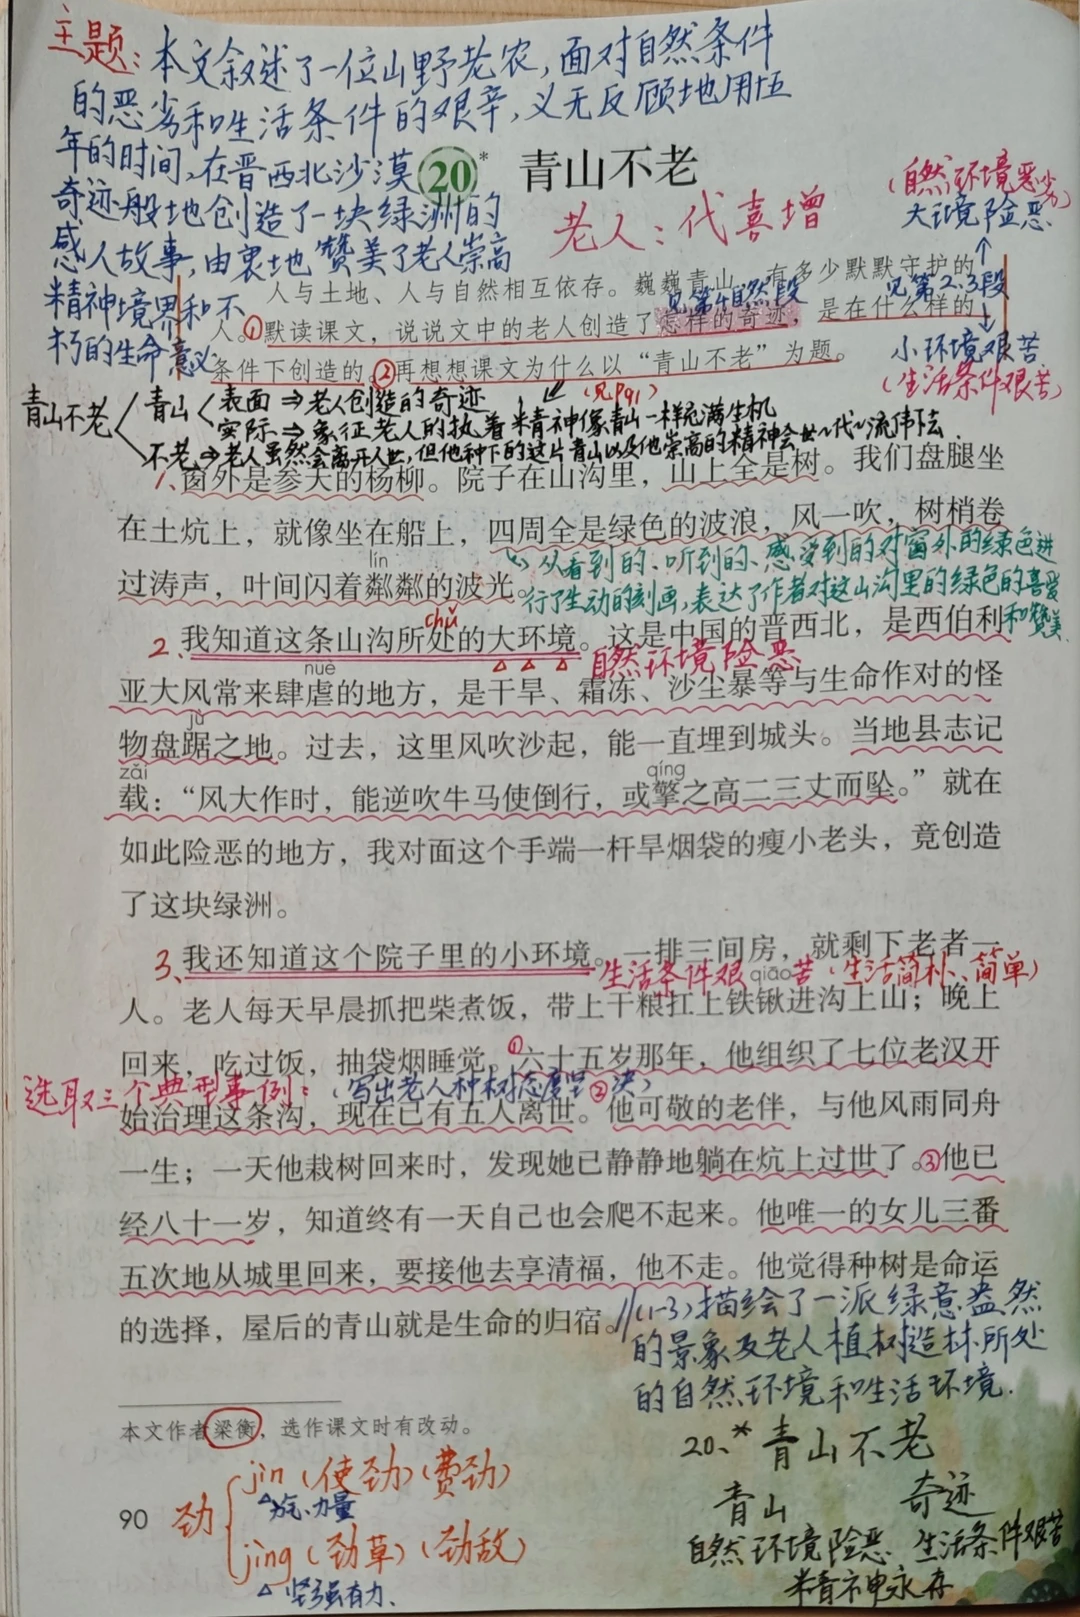 主题：本文叙述了一位山野老农，面对自然条件
的恶劣和生活条件的艰辛，义无反顾地用15
年的时间，在晋西北沙漠
奇迹般地创造了一块绿洲的
感人故事，由衷地赞美了老人崇高
精神境界和不
朽的生命意义
20* 青山不老
老人：代喜增
（自然环境恶劣）
大环境险恶
见第2、3段
小环境艰苦
（生活条件艰苦）
人与土地、人与自然相互依存。巍巍青山，有多少默默守护的
见第4自然段
人。①默读课文，说说文中的老人创造了怎样的奇迹，是在什么样的
条件下创造的。②再想想课文为什么以“青山不老”为题。
（见P91）
青山不老
青山
表面⇒老人创造的奇迹
实际⇒象征老人的执着精神像青山一样充满生机
不老⇒老人虽然会离开人世，但他种下的这片青山以及他崇高的精神会世代流传下去
1、窗外是参天的杨柳。院子在山沟里，山上全是树。我们盘腿坐
在土炕上，就像坐在船上，四周全是绿色的波浪，风一吹，树梢卷
从看到的、听到的、感受到的对窗外的绿色进
lín
过涛声，叶间闪着粼粼的波光。
行了生动的刻画，表达了作者对这山沟里的绿色的喜爱
和赞美
chǔ
2、我知道这条山沟所处的大环境。这是中国的晋西北，是西伯利
自然环境险恶
nüè
亚大风常来肆虐的地方，是干旱、霜冻、沙尘暴等与生命作对的怪
jù
物盘踞之地。过去，这里风吹沙起，能一直埋到城头。当地县志记
zǎi qíng
载：“风大作时，能逆吹牛马使倒行，或擎之高二三丈而坠。”就在
如此险恶的地方，我对面这个手端一杆旱烟袋的瘦小老头，竟创造
了这块绿洲。
3、我还知道这个院子里的小环境。一排三间房，就剩下老者一
生活条件艰苦（生活简朴、简单）
qiāo
人。老人每天早晨抓把柴煮饭，带上干粮扛上铁锹进沟上山；晚上
回来，吃过饭，抽袋烟睡觉。①六十五岁那年，他组织了七位老汉开
选取三个典型事例：（写出老人种树态度坚决）
始治理这条沟，现在已有五人离世。②他可敬的老伴，与他风雨同舟
一生；一天他栽树回来时，发现她已静静地躺在炕上过世了。③他已
经八十一岁，知道终有一天自己也会爬不起来。他唯一的女儿三番
五次地从城里回来，要接他去享清福，他不走。他觉得种树是命运
的选择，屋后的青山就是生命的归宿。//
（1-3）描绘了一派绿意盎然
的景象及老人植树造林所处
的自然环境和生活环境.
本文作者梁衡，选作课文时有改动。
劲
jìn（使劲）（费劲）
力气、力量
jìng（劲草）（劲敌）
坚强有力、
90
20、* 青山不老
青山 奇迹
自然环境险恶 生活条件艰苦
精神永存